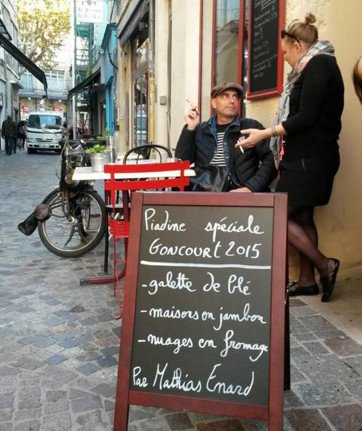 Piadine spéciale
Goncourt 2015
- galette de blé
- maisons en jambon
- nuages en fromage
Par Mathias Enard